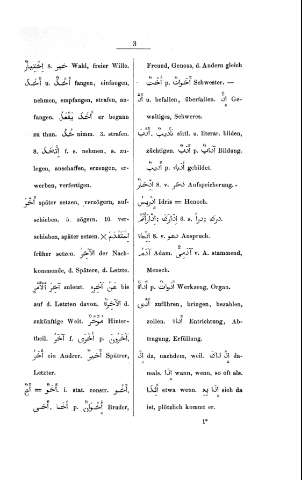 3
اِخْتِيَارٌ s. خير Wahl, freier Wille.
u. أَخَذَ fangen, einfangen,
nehmen, empfangen, strafen, an-
fangen. أَخَذَ يَفْعَلُ er begann
zu thun. خُذْ nimm. 3. strafen.
8. اِتَّخَذَ f. s. nehmen, s. zu-
legen, anschaffen, erzeugen, er-
werben, verfertigen.
أَخَّرَ später setzen, verzögern, auf-
schieben. 5. zögern. 10. ver-
schieben, später setzen. × اِسْتَقْدَمَ
früher setzen. الآخِرُ der Nach-
kommende, d. Spätere, d. Letzte.
zuletzt. عَنْ آخِرِهِ bis
auf d. Letzten davon. الآخِرَةُ d.
zukünftige Welt. Hinter-
theil. آخَرُ f. أُخْرَى p. آخَرُونَ
ein Anderer. أَخِيرٌ Späterer,
Letzter.
أَخٌ = أَخُو i. stat. constr.
p. Bruder,
Freund, Genoss, d. Andern gleich
أُخْتٌ p. أَخَوَاتٌ Schwester. —
u. befallen, überfallen. Ge-
waltiges, Schweres.
أَدَبٌ sittl. u. literar. bilden,
züchtigen. أَدَبٌ p. آدَابٌ Bildung.
أَدِيبٌ p. أُدَبَاءُ gebildet.
8. v. ذخر Aufspeicherung. -
إِدْرِيسُ Idris = Henoch.
8. v. دعو Anspruch.
آدَمُ Adam. آدَمِيٌّ v. A. stammend,
Mensch.
أَدَاةٌ p. أَدَوَاتٌ Werkzeug, Organ.
zuführen, bringen, bezahlen,
zollen. أَدَاءٌ Entrichtung, Ab-
tragung, Erfüllung.
إِذْ da, nachdem, weil. — إِذَا da,
wann, wenn, so oft als.
etwa wenn. إِذَا بِهِ sieh da
ist, plötzlich kommt er.
1*